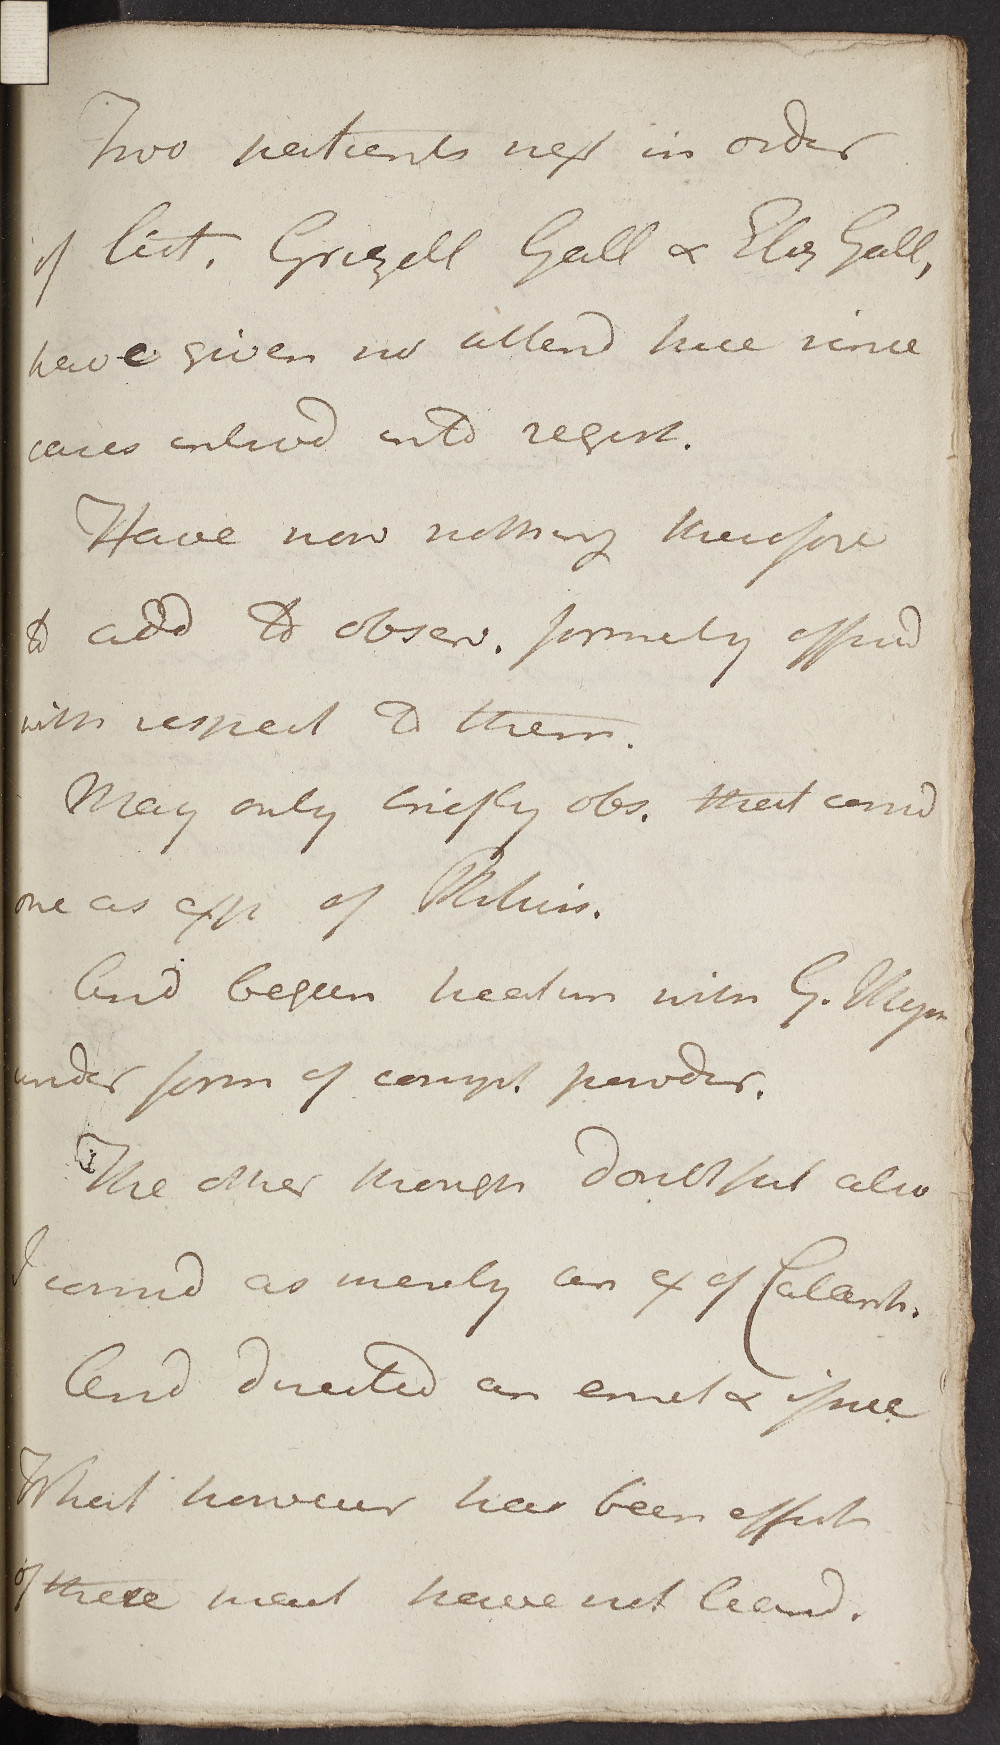 Two patients next in order
of list, Grizell Gall & Eliz Gall,
have given no attend here since
cases entered into regist.
Have now nothing therefore
to add to observ. formerly offered
with respect to them.
May only briefly obs. that consid
one as exp of Phthisis.
And begun treatm with G. Myrr
under form of compt. powder.
The other though doubtful also
I consid as merely an ex of Catarrh.
And directed an emet & issue
What however has been effect
of these meas have not heard.